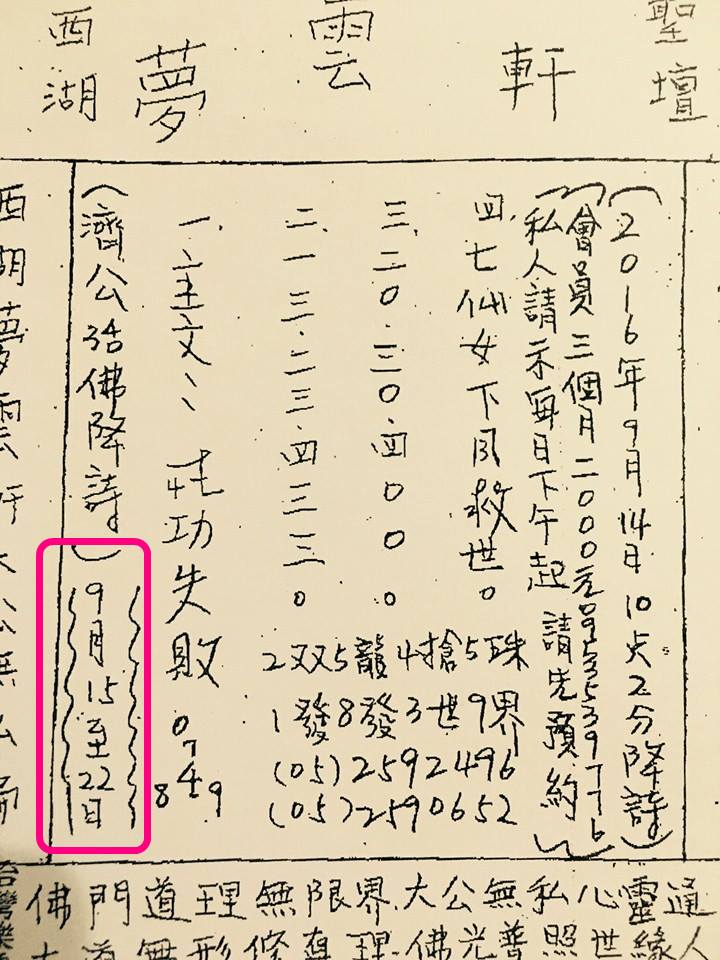 聖壇
軒
雲
夢
西湖
(2016年9月14日10点2分降詩)
(會員三個月二000元
私人請示每日下午起 請先預約)
四.七仙女下凡救世。
三.二0.三0.四00。
二.一三.二三.四三三。
一.主文:
功失敗
074
8 9
2双5龍4搶5珠
1發8發3世9界
(05)2592496
(05)2590652
(濟公活佛降詩)
9月15至22日
西湖夢雲軒大公無私
佛門道理無限界.大公無私心靈通
道無形修真理.佛光普照世緣人
台灣樂